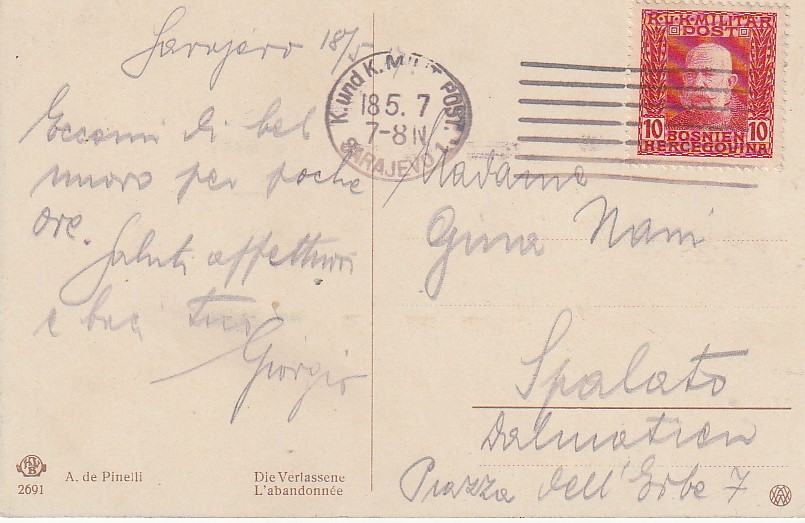 Sarajevo 18/5
Eccomi di bel
nuovo per poche
ore.
Saluti affettuosi
e baci tuo
Giorgio
K. und K. MILIT. POST.
18 5. 7
7-8 N
SARAJEVO 1.
K.u.K. MILITÄR
POST
10 10
BOSNIEN
HERCEGOVINA
Madame
Nani
Spalato
Dalmatien
Piazza dell'Erbe 7
2691
A. de Pinelli
Die Verlassene
L'abandonnée